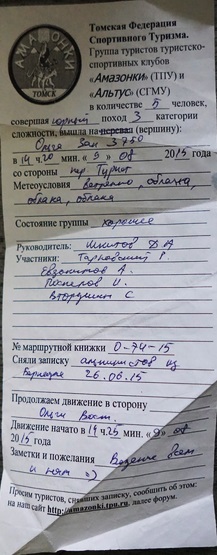 АМАЗОНКИ
ТОМСК
Томская Федерация
Спортивного Туризма.
Группа туристов туристско-
спортивных клубов
«Амазонки» (ТПУ) и
«Альтус» (СГМУ)
в количестве 5 человек,
совершая горный поход 3 категории
сложности, вышла на перевал (вершину):
Зап 3750
в 14 ч 20 мин. « 9 » 08 2015 года
со стороны пер Турист
Метеоусловия ветренно, облачка,
облака, облака
Состояние группы хорошее
Руководитель: Д А
Участники: Р.
Евдокимов А.
И.
С
№ маршрутной книжки 0-74-15
Сняли записку альпинистов из
Барнаула 26.06.15
Продолжаем движение в сторону
Вост.
Движение начато в 14 ч 25 мин. « 9 » 08
2015 года
Заметки и пожелания Везенье Всем
и нам =)
Просим туристов, снявших записку, сообщить об этом:
на наш сайт http://amazonki.tpu.ru, далее форум.